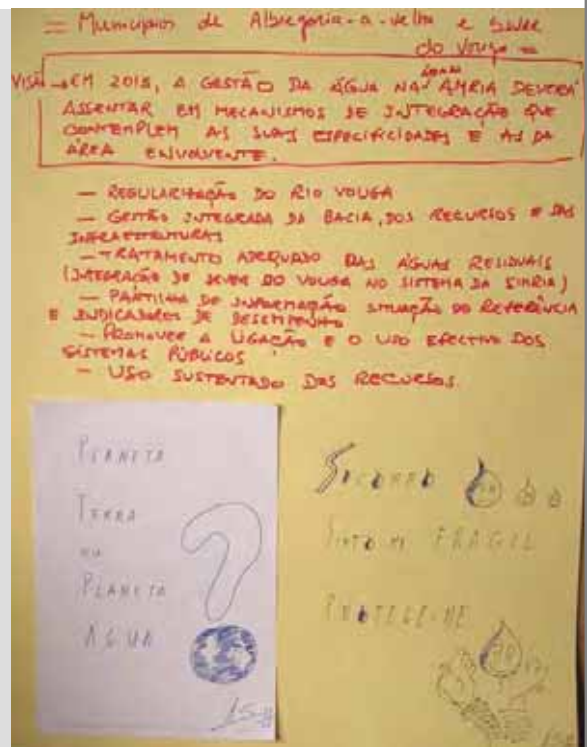 = Municípios de Albergaria-a-velha e Sever
do Vouga =
VISÃO → EM 2015, A GESTÃO DA ÁGUA NA AMRIA DEVERÁ
ASSENTAR EM MECANISMOS DE INTEGRAÇÃO QUE
CONTEMPLEM AS SUAS ESPECIFICIDADES E AS DA
ÁREA ENVOLVENTE.
— REGULARIZAÇÃO DO RIO VOUGA
— GESTÃO INTEGRADA DA BACIA, DOS RECURSOS E DAS
INFRAESTRUTURAS
— TRATAMENTO ADEQUADO DAS ÁGUAS RESIDUAIS
(INTEGRAÇÃO DE SEVER DO VOUGA NO SISTEMA DA SIMRIA)
— PARTILHA DE INFORMAÇÃO SITUAÇÃO DE REFERÊNCIA
E INDICADORES DE DESEMPENHO
— PROMOVER A LIGAÇÃO E O USO EFECTIVO DOS
SISTEMAS PÚBLICOS
— USO SUSTENTADO DOS RECURSOS.
PLANETA
TERRA
OU
PLANETA
ÁGUA
?
SOCORRO
SINTO-ME FRÁGIL
PROTEGE-ME